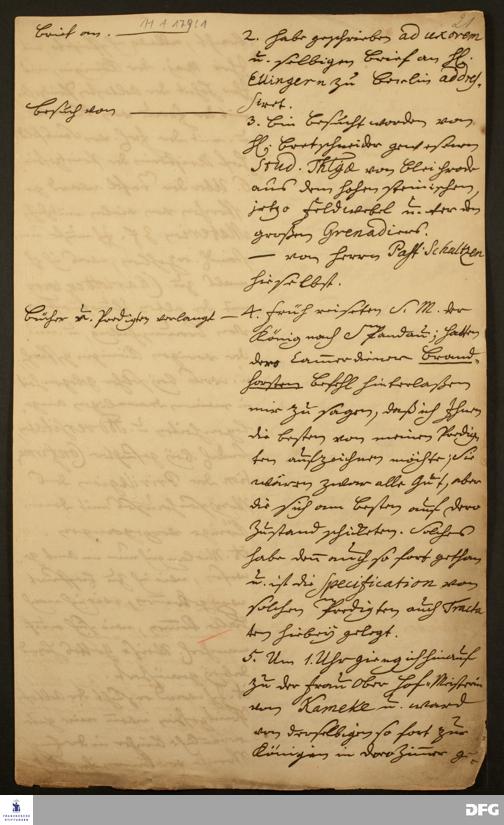 H A 179:1
21
Brief an.
2. habe geschrieben ad uxorem
u. selbigen Brief an H.
Ellingern zu Berlin addres-
siret.
Besuch von
3. bin besucht worden von
H. Bretschneider gewesenen
Stud. Thlgæ von Bleicherode
aus dem Hohensteinischen,
jetzo Feldwebel u. unter den
großen Grenadiers.
— von Herrn Past. Schultzen
hieselbst.
Bücher u. Predigten verlangt
4. Früh reiseten S. M. der
König nach Spandau; hatten
dero Cammerdiener Brand-
horsten befehl hinterlaßen
mir zu sagen, daß ich Ihnen
die besten von meinen Predig-
ten aufzeichnen möchte; Sie
wären zwar alle gut, aber
die sich am besten auf dero
Zustand schickten. Solches
habe denn auch so fort gethan
u. ist die Specification von
solchen Predigten auch Tracta-
ten hiebey gelegt.
5. Um 1. Uhr gieng ich hinauf
zu der Frau Ober Hof-Meisterin
von Kameke u. ward
von derselbigen so fort zur
Königin in dero Zimmer ge-
FRANCKESCHE STIFTUNGEN
DFG